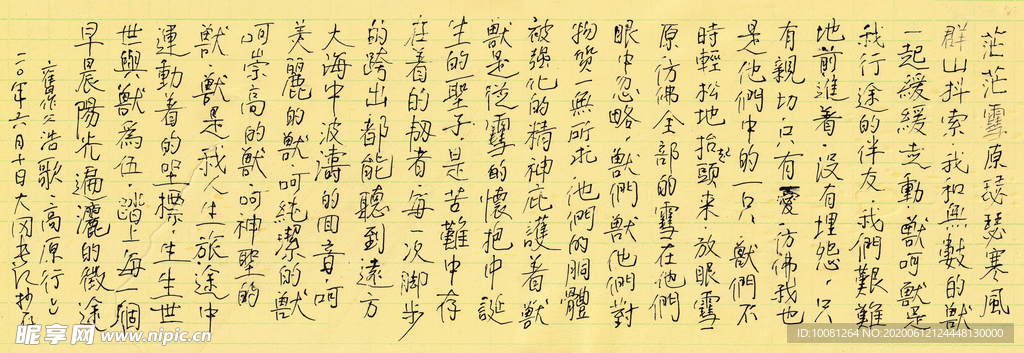 茫茫雪原瑟瑟寒風
群山抖索·我和無數的獸
一起緩緩走動·獸呵獸是
我行途的伴友·我們艱難
地前進着·沒有埋怨·只
有親切·只有愛·彷彿我也
是他們中的一只·獸們不
時輕松地抬起頭來·放眼雪
原·彷彿全部的雪在他們
眼中忽略·獸們獸他們對
物質一無所求·他們的胴體
被强化的精神庇護着·獸
獸是從雪的懷抱中誕
生的聖子·是苦難中存
在着的韌者·每一次脚步
的跨出都能聽到遠方
大海中波濤的回音·呵
美麗的獸呵純潔的獸
呵崇高的獸·呵神聖的
獸·獸是我人生旅途中
運動者的坐標·生生世
世與獸爲伍·踏上每一個
早晨陽光遍灑的征途
舊作 浩歌·高原行
二〇年六月十日大風
昵享网 www.nipic.cn
ID:10081264 NO:20200612124448130000